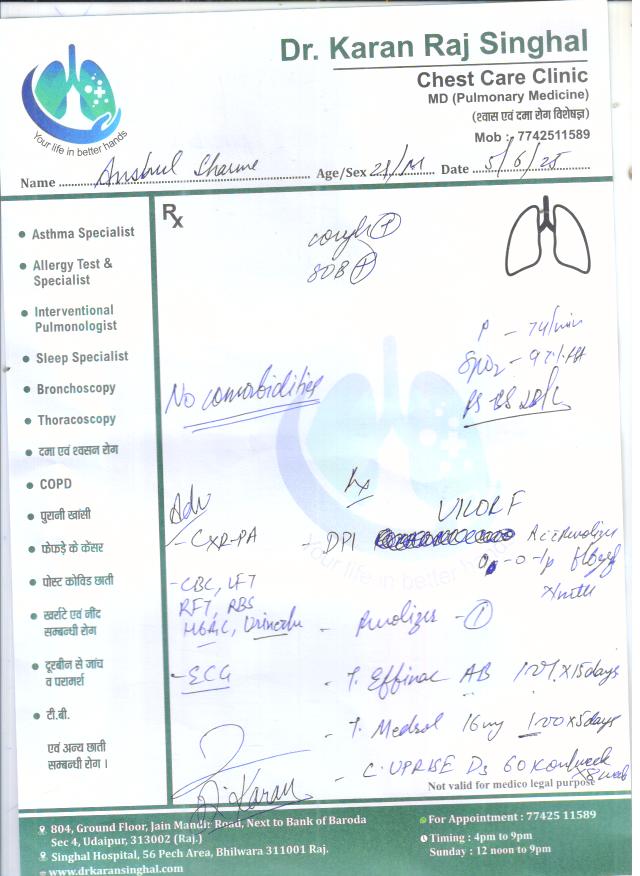 Dr. Karan Raj Singhal
Chest Care Clinic
MD (Pulmonary Medicine)
(श्वास एवं दमा रोग विशेषज्ञ)
Mob :- 7742511589
Your life in better hands
Name Anshul Sharma Age/Sex 28/M Date 5/6/25
Rx
cough (+)
SOB (+)
• Asthma Specialist
• Allergy Test & Specialist
• Interventional Pulmonologist
• Sleep Specialist
• Bronchoscopy
• Thoracoscopy
• दमा एवं श्वसन रोग
• COPD
• पुरानी खांसी
• फेफड़े के कैंसर
• पोस्ट कोविड छाती
• खर्राटे एवं नींद सम्बन्धी रोग
• दूरबीन से जांच व परामर्श
• टी.बी.
एवं अन्य छाती सम्बन्धी रोग ।
P - 74/min
SpO2 - 97%
No comorbidities
Adv
- CXR-PA
- CBC, LFT
RFT, RBS
HbA1C, Urine
- ECG
Rx
VILOR F
- DPI
- T. Effinac AB 1 0 1 X 15 days
- T. Medrol 16 mg 1 0 0 X 5 days
- C. UPRISE D3 60K once/week
X 8 week
Dr. Karan
Your life in better hands
Not valid for medico legal purpose
804, Ground Floor, Jain Mandir Road, Next to Bank of Baroda
Sec 4, Udaipur, 313002 (Raj.)
Singhal Hospital, 56 Pech Area, Bhilwara 311001 Raj.
www.drkaransinghal.com
For Appointment : 77425 11589
Timing : 4pm to 9pm
Sunday : 12 noon to 9pm